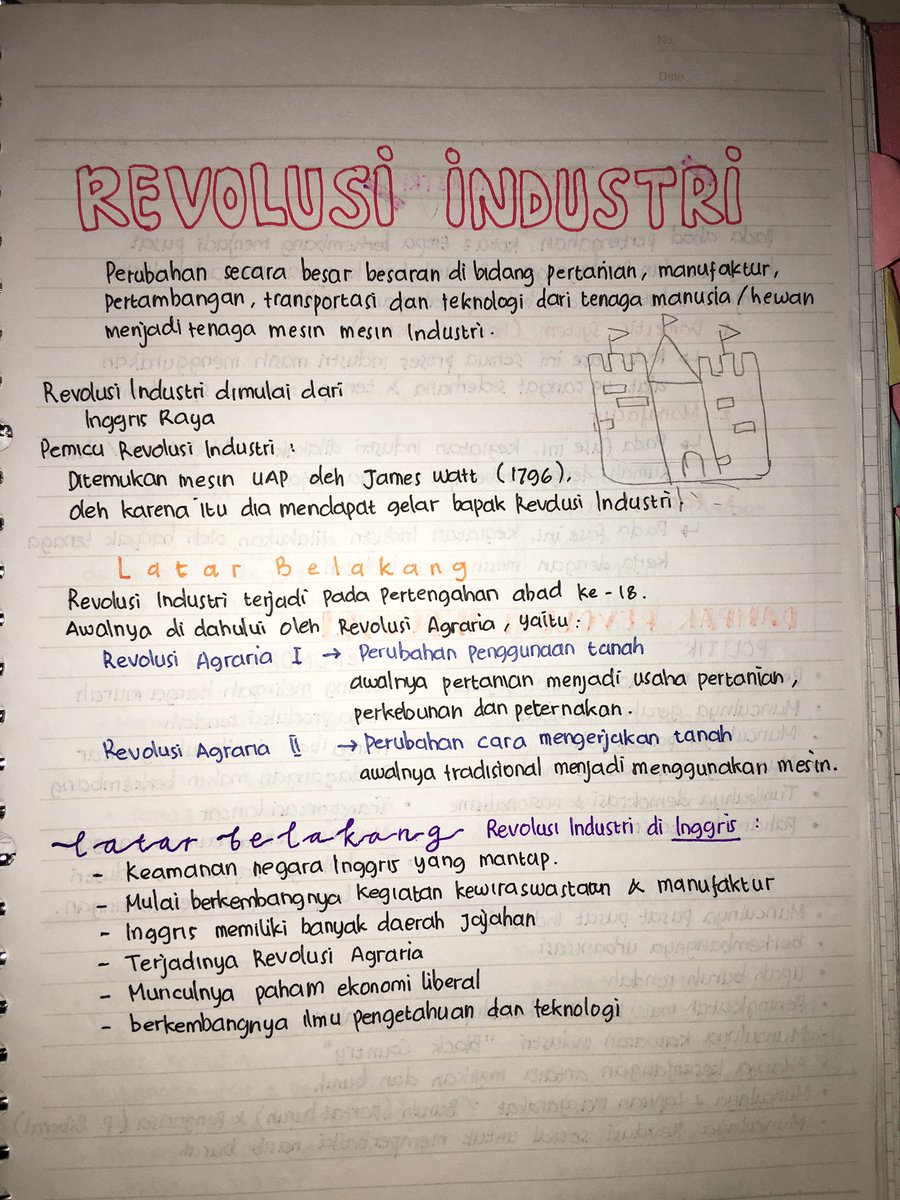 No.
Date
REVOLUSI INDUSTRI
Perubahan secara besar besaran di bidang pertanian, manufaktur,
pertambangan, transportasi dan teknologi dari tenaga manusia/hewan
menjadi tenaga mesin mesin Industri.
Revolusi Industri dimulai dari
Inggris Raya
Pemicu Revolusi Industri :
Ditemukan mesin UAP oleh James Watt (1796).
oleh karena itu dia mendapat gelar bapak Revolusi Industri.
Latar Belakang
Revolusi Industri terjadi pada Pertengahan abad ke-18.
Awalnya di dahului oleh Revolusi Agraria, yaitu :
Revolusi Agraria I → Perubahan penggunaan tanah
awalnya pertanian menjadi usaha pertanian,
perkebunan dan peternakan.
Revolusi Agraria II → Perubahan cara mengerjakan tanah
awalnya tradisional menjadi menggunakan mesin.
Latar belakang Revolusi Industri di Inggris :
- Keamanan negara Inggris yang mantap.
- Mulai berkembangnya kegiatan kewiraswastaan & manufaktur
- Inggris memiliki banyak daerah jajahan
- Terjadinya Revolusi Agraria
- Munculnya paham ekonomi liberal
- berkembangnya ilmu pengetahuan dan teknologi